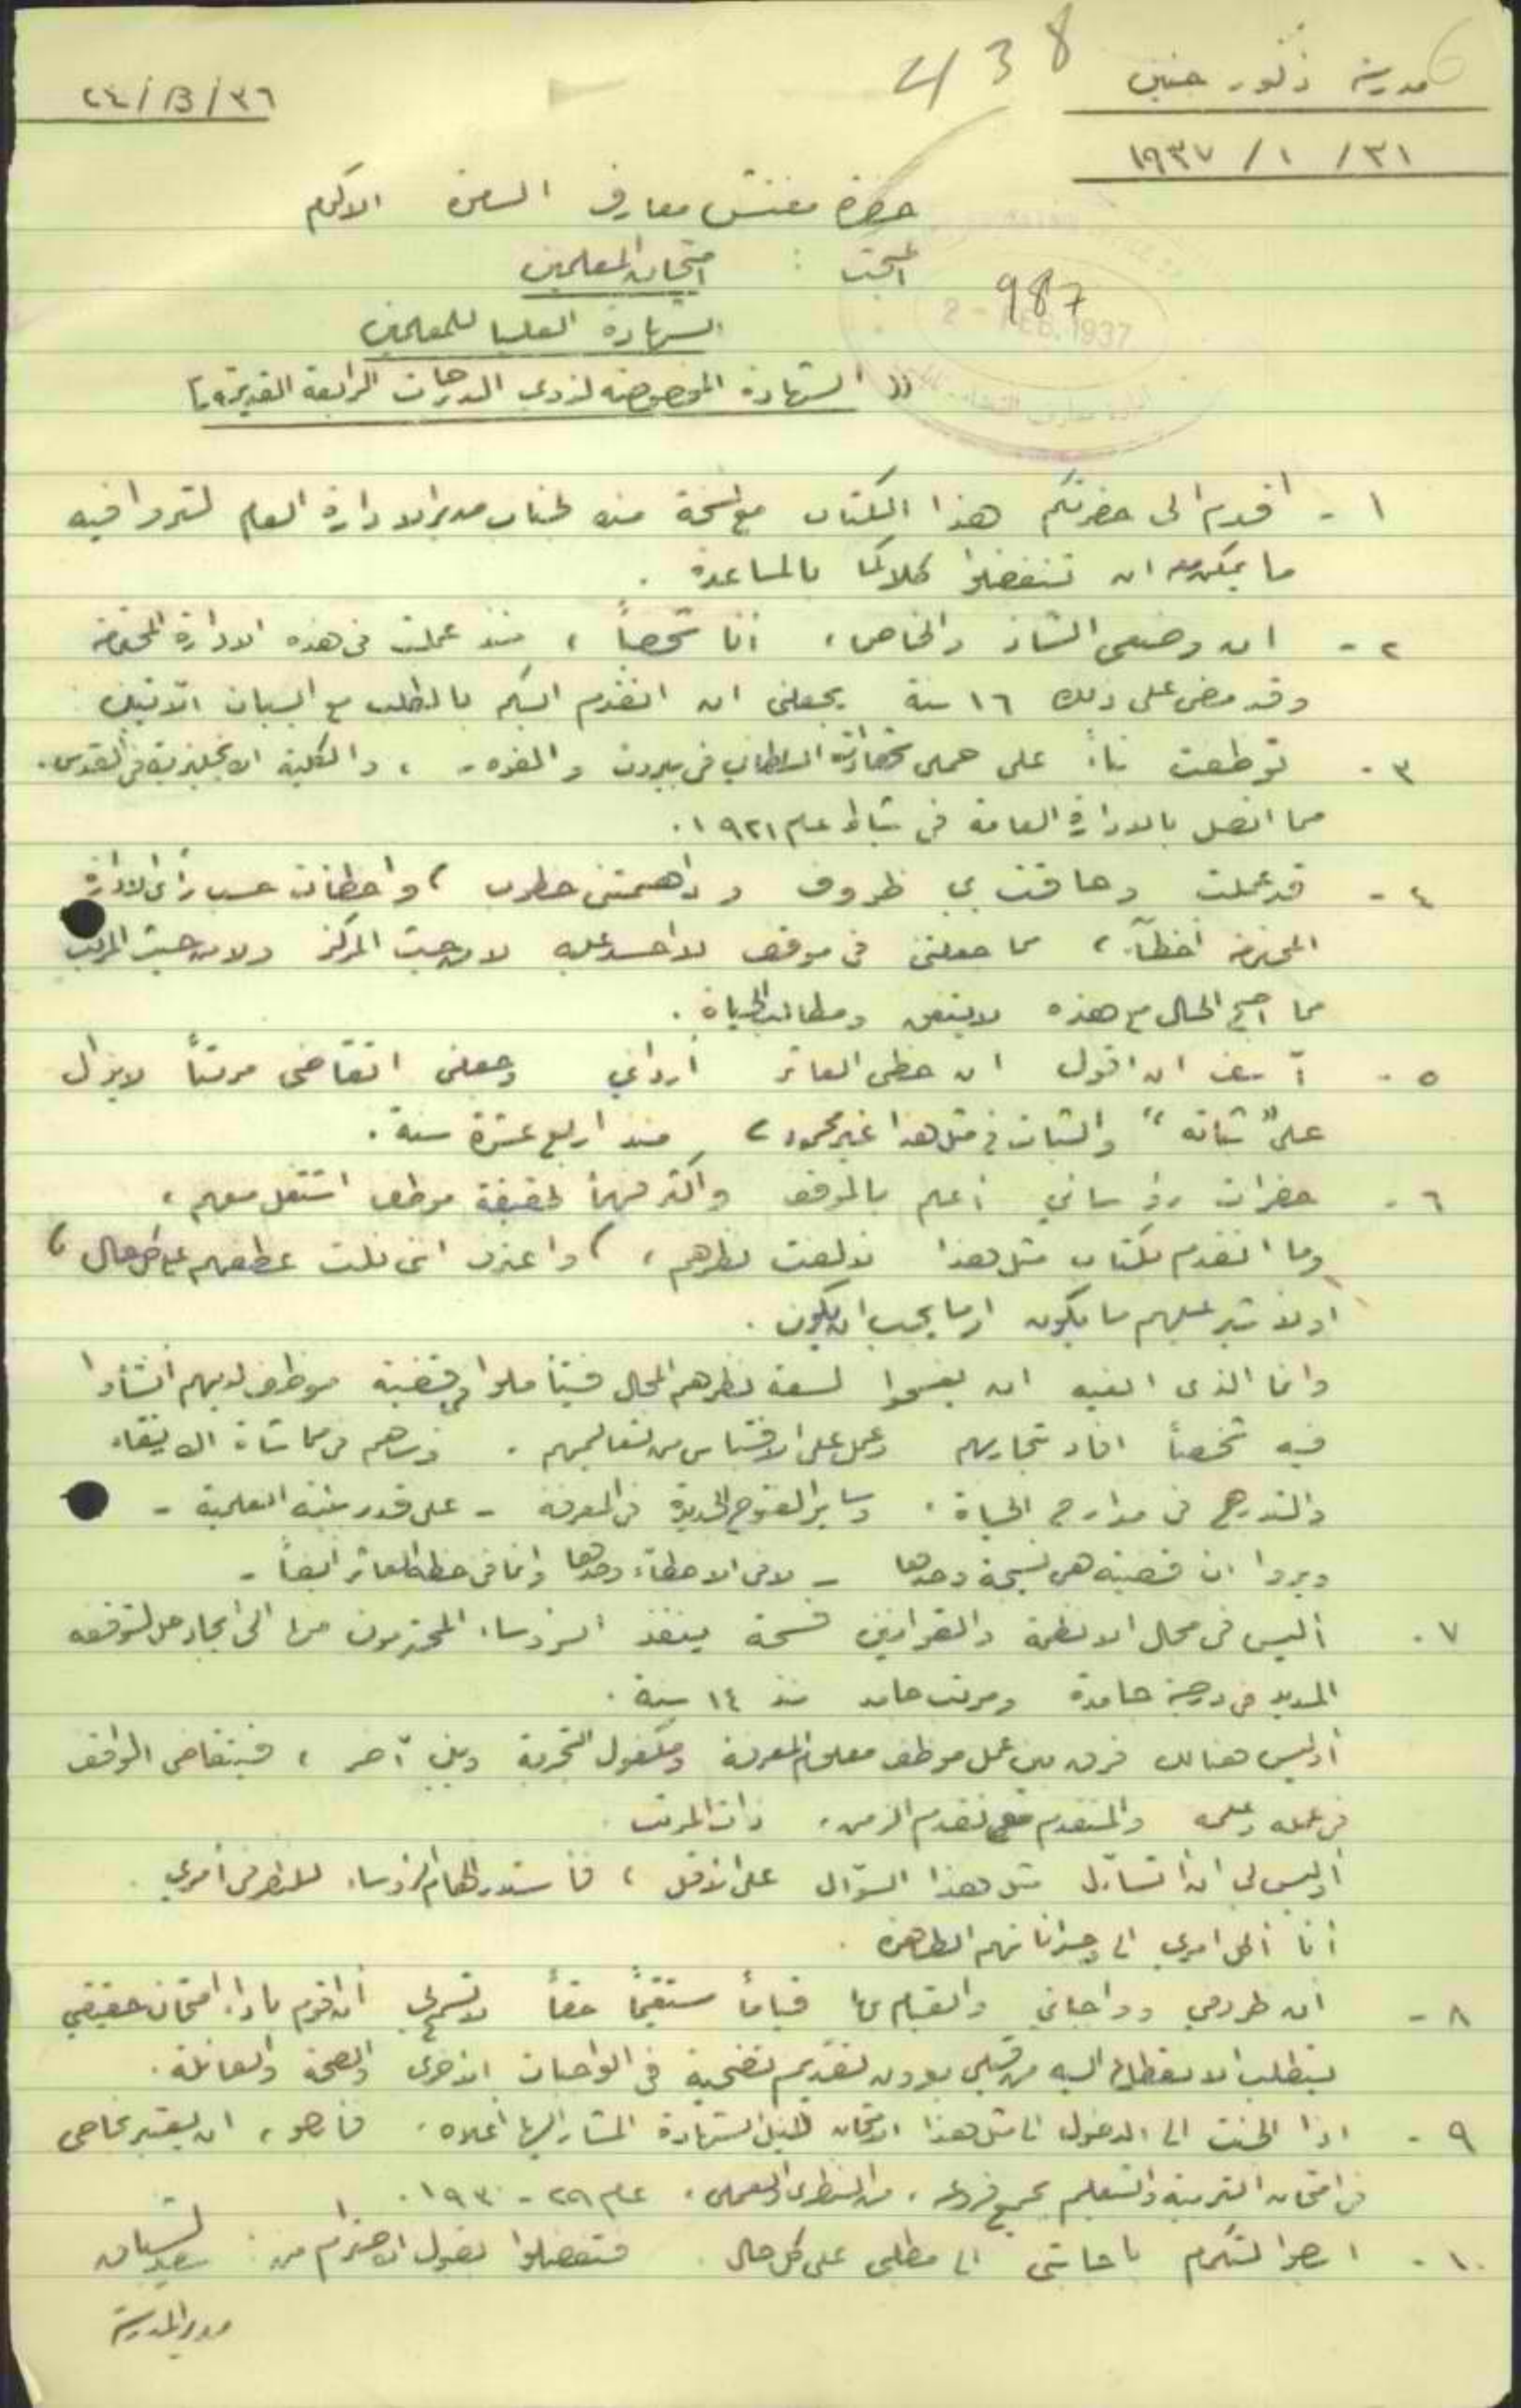 438
مدرسة ذكور جنين
٢٤/B/٣٦
٣١ / ١ / ١٩٣٧
حضرة مفتش معارف السامرة الاكرم
987
2 - FEB. 1937
المبحث : امتحان المعلمين
الشهادة العليا للمعلمين
(( الشهادة المخصوصة لذوي الدرجات الرابعة القديمة ))
١ - اقدم الى حضرتكم هذا الكتاب مع نسخة منه لجناب مدير الادارة العام لتروا فيه
ما يمكن معه ان تتفضلوا كلاكما بالمساعدة .
٢ - ان وضعي الشاذ والخاص، انا شخصياً ، منذ عملت في هذه الادارة المحترمة
وقد مضى على ذلك ١٦ سنة يجعلني ان اتقدم اليكم بالطلب مع البيان الآتيين
٣ - توظفت بناءً على حملي شهادتي السلطاني في بيروت و ، والكلية الانجليزية في القدس.
مما اتصل بالادارة العامة في شباط عام ١٩٢١.
٤ - قد عملت وحاقت بي ظروف و داهمتني خطوب ، واخطأت حسب رأي الادارة
المحترمة أخطآء ، مما جعلني في موقف لا احسد عليه لا من حيث المركز ولا من حيث المرتب
مما اصبح الحال مع هذه لا يتفق ومطالب الحياة .
٥ - آسف ان اقول ان حظي العاثر أرداني وجعلني اتقاضى مرتباً لا يزال
على "ثباته" والثبات في مثل هذا غير محمود ، منذ اربع عشرة سنة .
٦ - حضرات رؤسائي أعلم بالموقف واكثر فهماً لحقيقة موظف اشتغل معهم ،
وما اتقدم بكتاب مثل هذا لألفت نظرهم ، (واعترف انني نلت عطفهم على كل حال)
او لأشير عليهم ما يكون او ما يجب ان يكون .
وانما الذي ابغيه ان يفسحوا لسعة نظرهم المجال فيتأملوا في قضية موظف لديهم أنشأوا
فيه شخصاً افاد تجاربهم وعمل على الاقتباس من تعاليمهم . وساهم في مماشاة الارتقاء
والتدرج في مدارج الحياة ، وساير الفتوح الجديدة في المعرفة - على قدر بيئته العلمية -
ويروا ان قضيته هي نسيجة وحدها - لا في الاخطاء وحدها وانما في حظه العاثر ايضاً -
٧ - أليس في مجال الانظمة والقوانين فسحة ينفذ الرؤساء المحترمون منها الى ايجاد حل لتوقفه
المديد في درجة جامدة ومرتب جامد منذ ١٤ سنة .
أوليس هنالك فرق بين عمل موظف معلوم المعرفة ومكفول التجربة وبين آخر ، فيتقاضى الواقف
في عمله وعلمه والمتقدم مع تقدم الزمن، ذات المرتب .
أوليس لي ان اتساءل مثل هذا السؤال على الاقل ، فأستدر الهام الرؤساء للنظر في أمري .
أنا أكل امري الى وجداناتهم الطاهرة .
٨ - ان ظروفي وواجباتي والقيام بها قياماً مستقيماً حقاً لا تسمح لي أن اقوم باداء امتحان حقيقي
يتطلب الانقطاع اليه من قبلي بدون تقديم تضحية في الواجبات الاخرى والصحة والعائلة .
٩ - اذا الجئت الى الدخول الى مثل هذا الامتحان لنيل الشهادة المشار اليها أعلاه . فأرجو ، ان يعتبر نجاحي
في امتحان التربية والتعليم بجميع فروعه ، من النظري والعملي ، عام ٢٩ - ١٩٣٠ .
١٠ - ارجو التكرم باجابتي الى مطلبي على كل حال . فتفضلوا بقبول الاحترام من :
مدير المدرسة